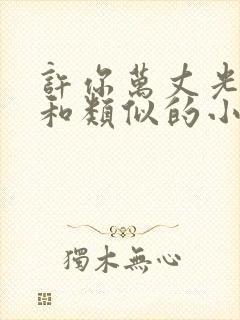 許你萬丈光
和類似的小
獨木無心